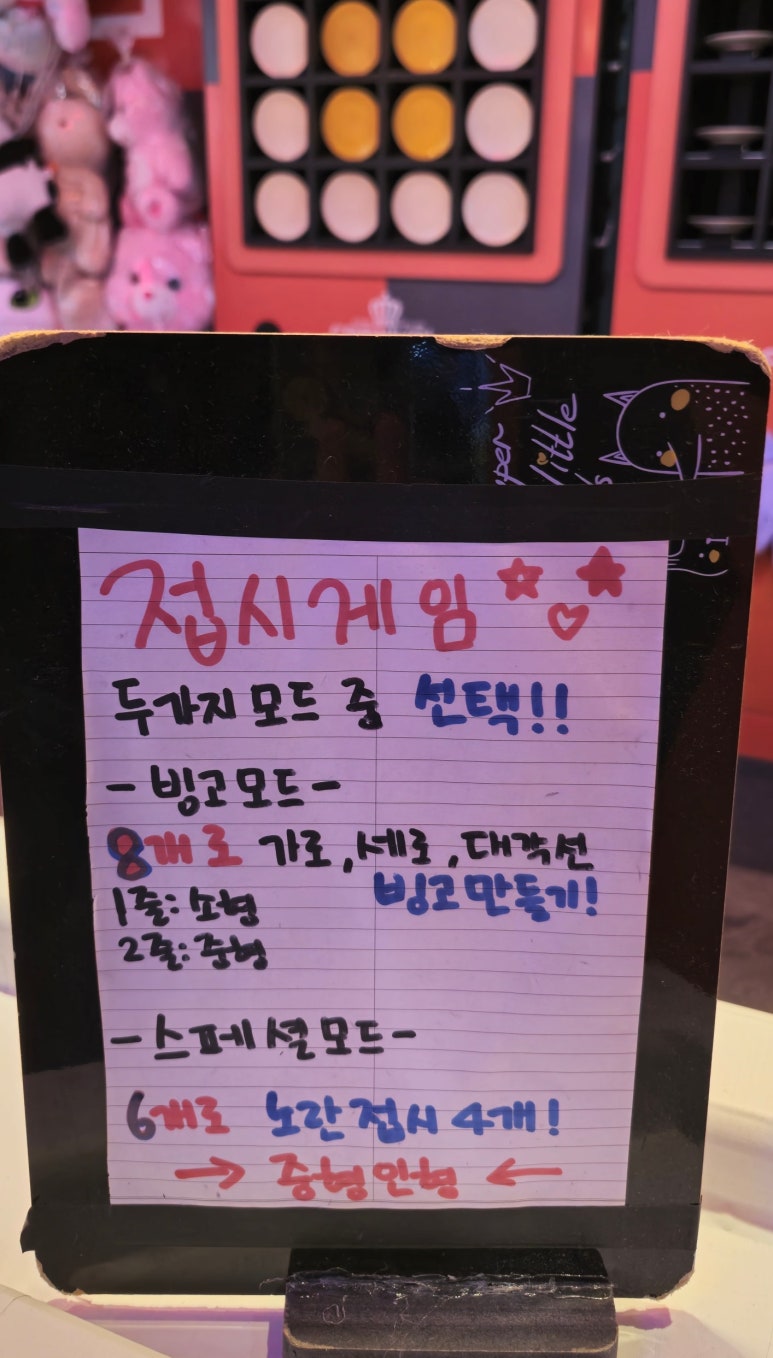 접시게임
두가지 모드 중 선택!!
- 빙고모드 -
8개로 가로, 세로, 대각선
빙고만들기!
1줄: 소형
2줄: 중형
- 스페셜모드 -
6개로 노란접시 4개!
→ 중형인형 ←
little